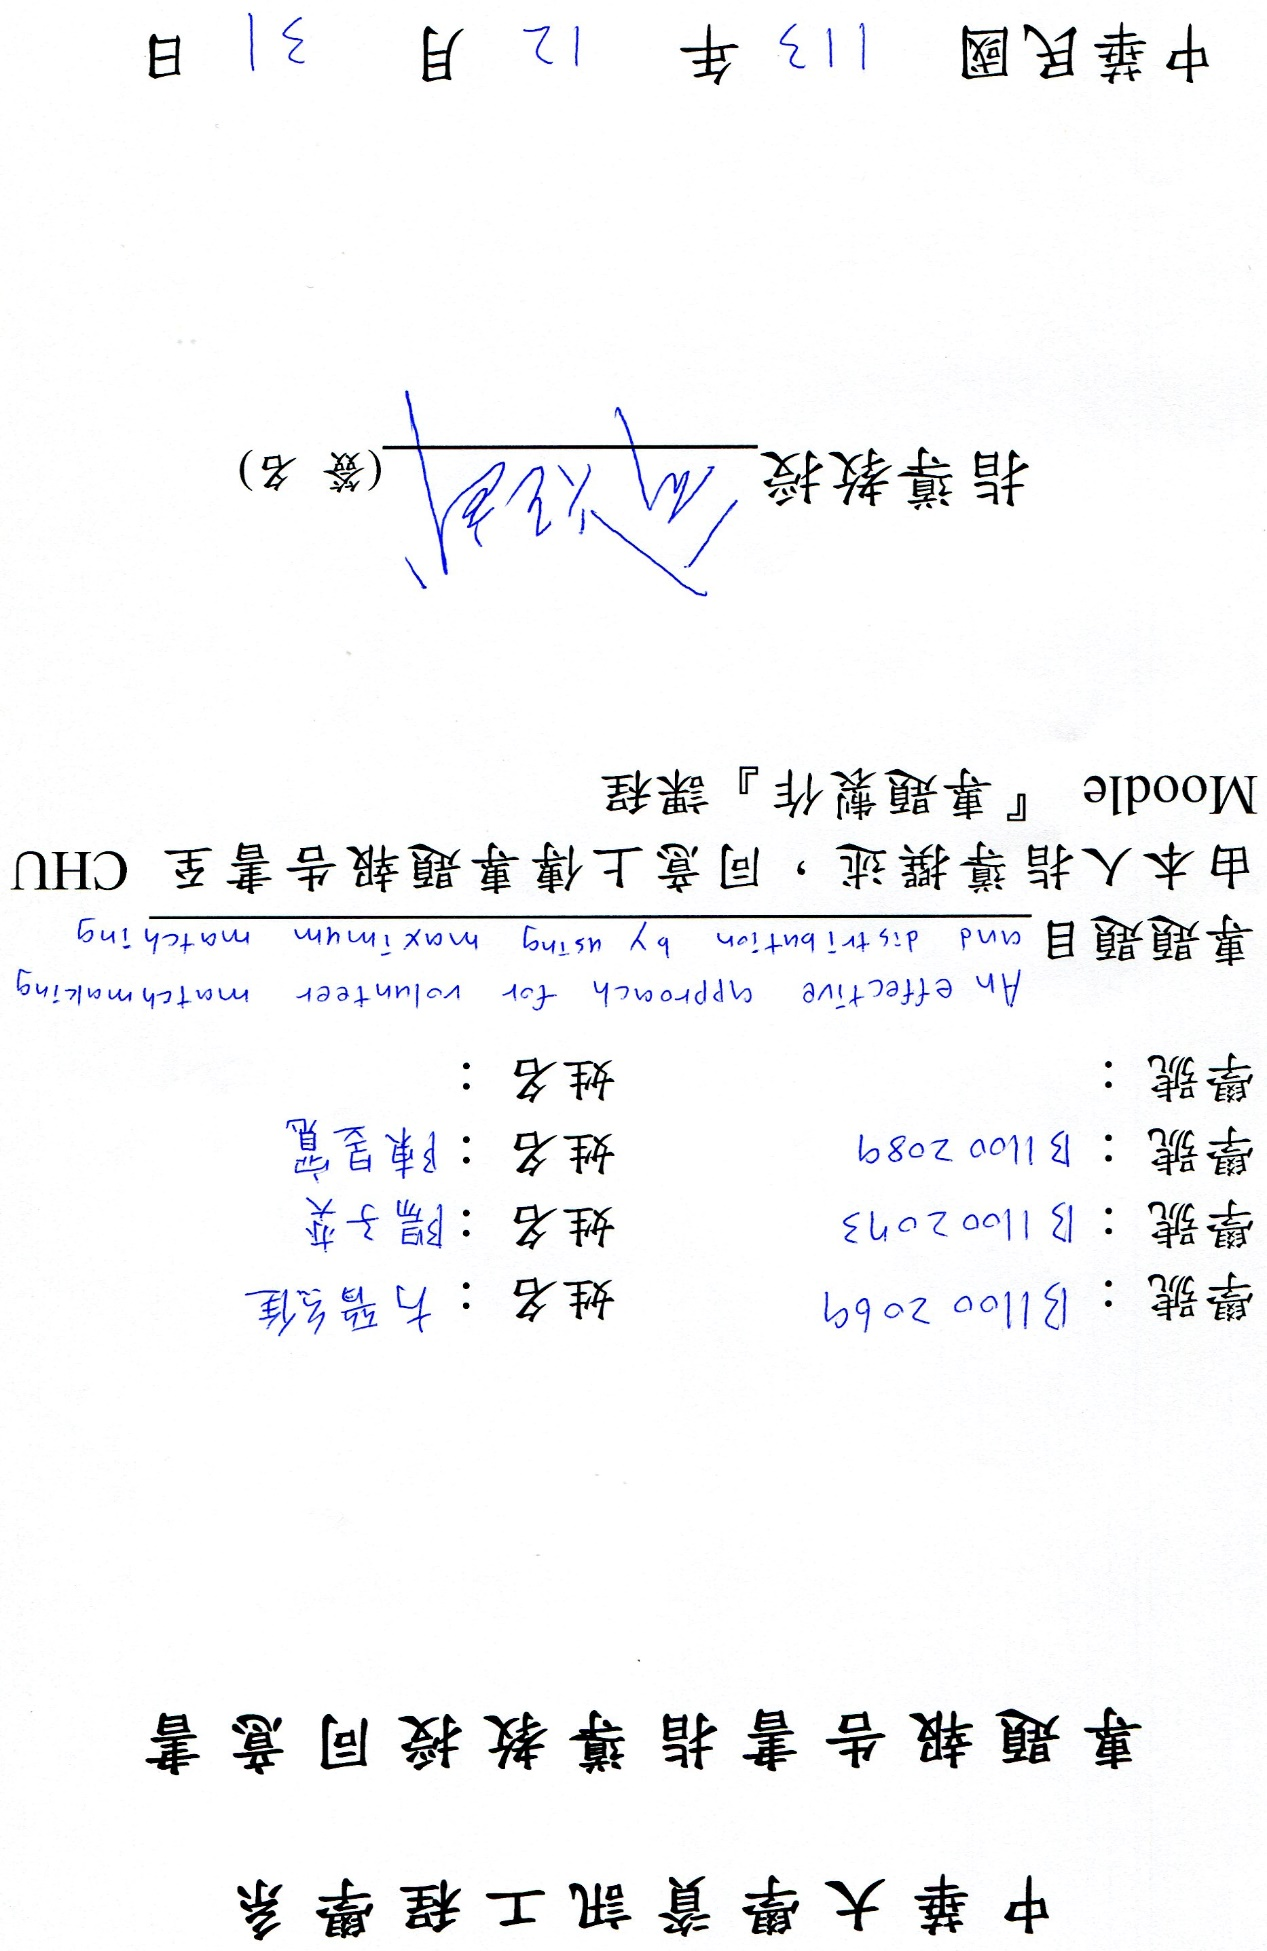 中華大學資訊工程學系
專題報告書指導教授同意書
學號：B11002069 姓名：方
學號：B11002073 姓名：陽子恭
學號：B11002089 姓名：陳昱寬
學號： 姓名：
An effective approach for volunteer matchmaking
專題題目 and distribution by using maximum matching
由本人指導撰述，同意上傳專題報告書至 CHU
Moodle 『專題製作』課程
指導教授 (簽名)
中華民國 113 年 12 月 31 日